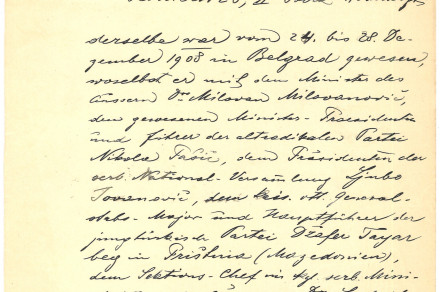 derselbe war vom 24. bis 28. De-
zember 1908 in Belgrad gewesen,
woselbst er mit dem Minister des
Äussern Dr Milovan Milovanović,
dem gewesenen Minister-Praesidenten
und Führer der altradikalen Partei
Nikola Pašić, dem Präsidenten der
serb. National-Versammlung Ljubo
Jovanović, dem kais. ott. General-
stabs-Major und Hauptführer der
jungtürkischen Partei Džafer Tayar
beg in Priština (Mazedonien),
dem Sektions-Chef im kgl. serb. Mini-